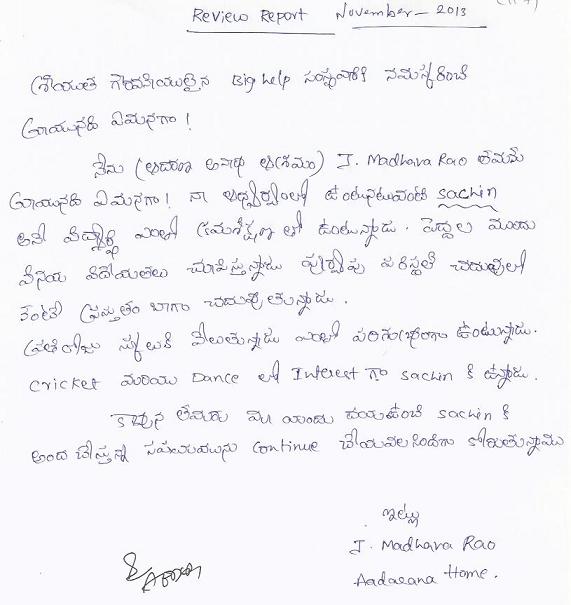 Review Report November - 2013
శ్రీయుత గౌరవనీయులైన Big help సంస్థవారికి నమస్కరించి
వ్రాయునది ఏమనగా!
నేను (ఆదరణ అనాథ ఆశ్రమం) J. Madhava Rao తమకు
వ్రాయునది ఏమనగా! నా ఆధ్వర్యంలో ఉంటున్నటువంటి sachin
అనే విద్యార్థి ఎంతో క్రమశిక్షణ లో ఉంటున్నాడు. పెద్దల ముందు
వినయ విధేయతలు చూపిస్తున్నాడు పూర్వపు పరిస్థితి చదువులో
కంటే ప్రస్తుతం బాగా చదువుతున్నాడు.
ప్రతిరోజు స్కూలుకి వెలుతున్నాడు ఎంతో పరిశుభ్రంగా ఉంటున్నాడు.
Cricket మరియు Dance లో Interest గా sachin కి ఉన్నాడు.
కావున తమరు మా యందు దయఉంచి sachin కి
అంద చేస్తున్న సహాయమును Continue చేయవలసిందిగా కోరుతున్నాము
ఇట్లు
J. Madhava Rao
Aadarana Home.